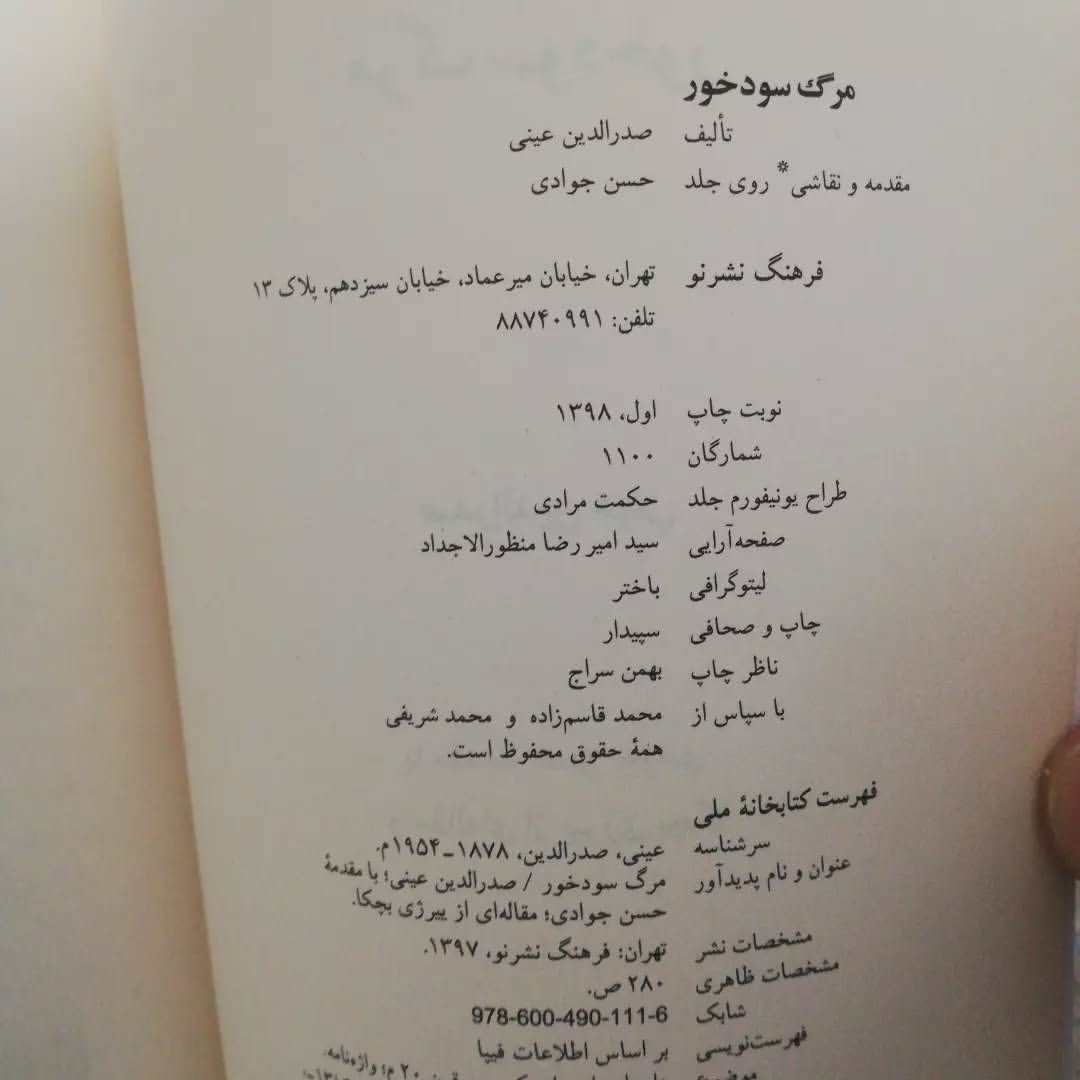 مرگ سودخور
تألیف صدرالدین عینی
مقدمه و نقاشی* روی جلد حسن جوادی
فرهنگ نشرنو تهران، خیابان میرعماد، خیابان سیزدهم، پلاک ۱۳
تلفن: ۸۸۷۴۰۹۹۱
نوبت چاپ اول، ۱۳۹۸
شمارگان ۱۱۰۰
طراح یونیفورم جلد حکمت مرادی
صفحه‌آرایی سید امیر رضا منظورالاجداد
لیتوگرافی باختر
چاپ و صحافی سپیدار
ناظر چاپ بهمن سراج
با سپاس از محمد قاسم‌زاده و محمد شریفی
همهٔ حقوق محفوظ است.
فهرست کتابخانهٔ ملی
سرشناسه عینی، صدرالدین، ۱۸۷۸-۱۹۵۴م.
عنوان و نام پدیدآور مرگ سودخور / صدرالدین عینی؛ با مقدمهٔ
حسن جوادی؛ مقاله‌ای از ییرژی بچکا.
مشخصات نشر تهران: فرهنگ نشرنو، ۱۳۹۷.
مشخصات ظاهری ۲۸۰ ص.
شابک 978-600-490-111-6
فهرست‌نویسی بر اساس اطلاعات فیپا
۲۰ م؛ واژه‌نامه.
موضوع